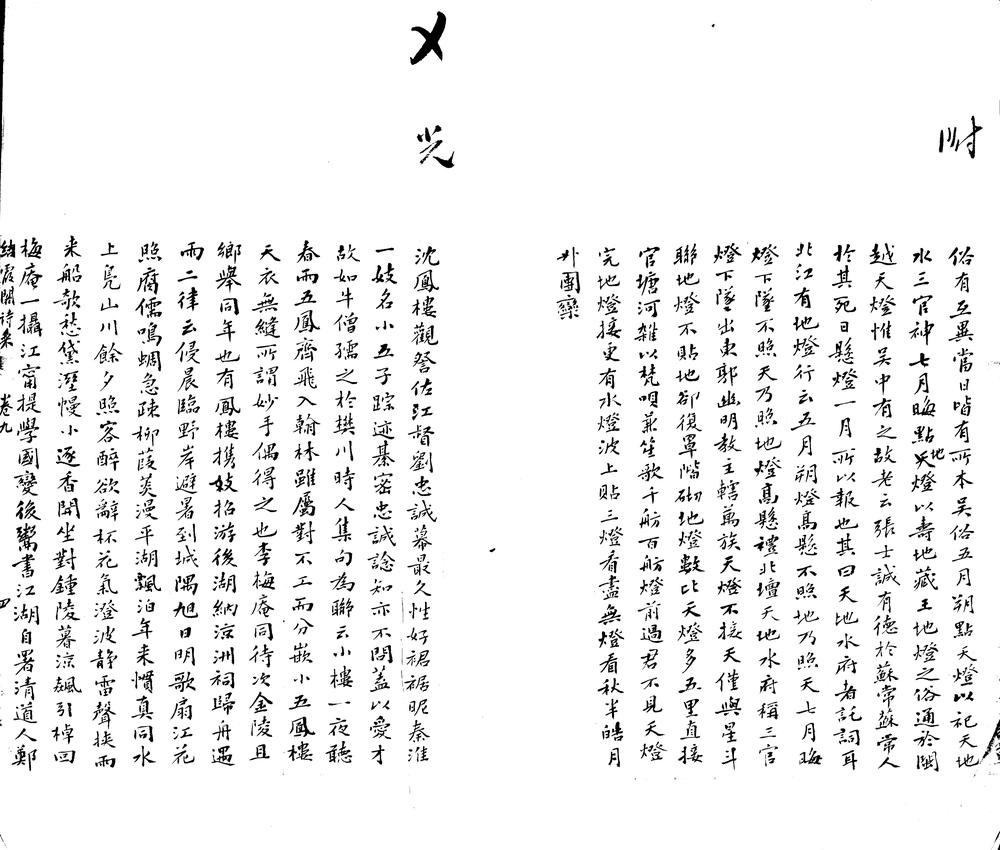 附
俗有互異當日皆有所本吳俗五月朔點天燈以祀天地
水三官神七月晦點地燈以壽地藏王地燈之俗通於閩
越天燈惟吳中有之故老云張士誠有德於蘇常蘇常人
於其死日懸燈一月所以報也其曰天地水府者託詞耳
北江有地燈行云五月朔燈高懸不照地乃照天七月晦
燈下墜不照天乃照地燈高懸禮北壇天地水府稱三官
燈下墜出東郭幽明教主轄萬族天燈不接天僅與星斗
聯地燈不貼地卻復罩階砌地燈數比天燈多五里直接
官塘河雜以梵唄兼笙歌千舫百舫燈前過君不見天燈
完地燈接更有水燈波上貼三燈看盡無燈看秋半皓月
外團欒
光
沈鳳樓觀詧佐江督劉忠誠幕最久性好裙裾昵秦淮
一妓名小五子踪迹綦密忠誠諗知亦不問蓋以愛才
故如牛僧孺之於樊川時人集句為聯云小樓一夜聽
春雨五鳳齊飛入翰林雖屬對不工而分嵌小五鳳樓
天衣無縫所謂妙手偶得之也李梅庵同待次金陵且
鄉舉同年也有鳳樓携妓招游後湖納涼洲祠歸舟遇
雨二律云侵晨臨野岸避暑到城隅旭日明歌扇江花
照腐儒鳴蜩急疎柳葭菼漫平湖飄泊年来慣真同水
上鳧山川餘夕照客醉欲辭杯花氣澄波静雷聲挾雨
来船欹愁黛溼慢小逐香開坐對鍾陵暮涼飆引棹回
梅庵一攝江甯提學國變後鬻書江湖自署清道人鄭
卷九
四